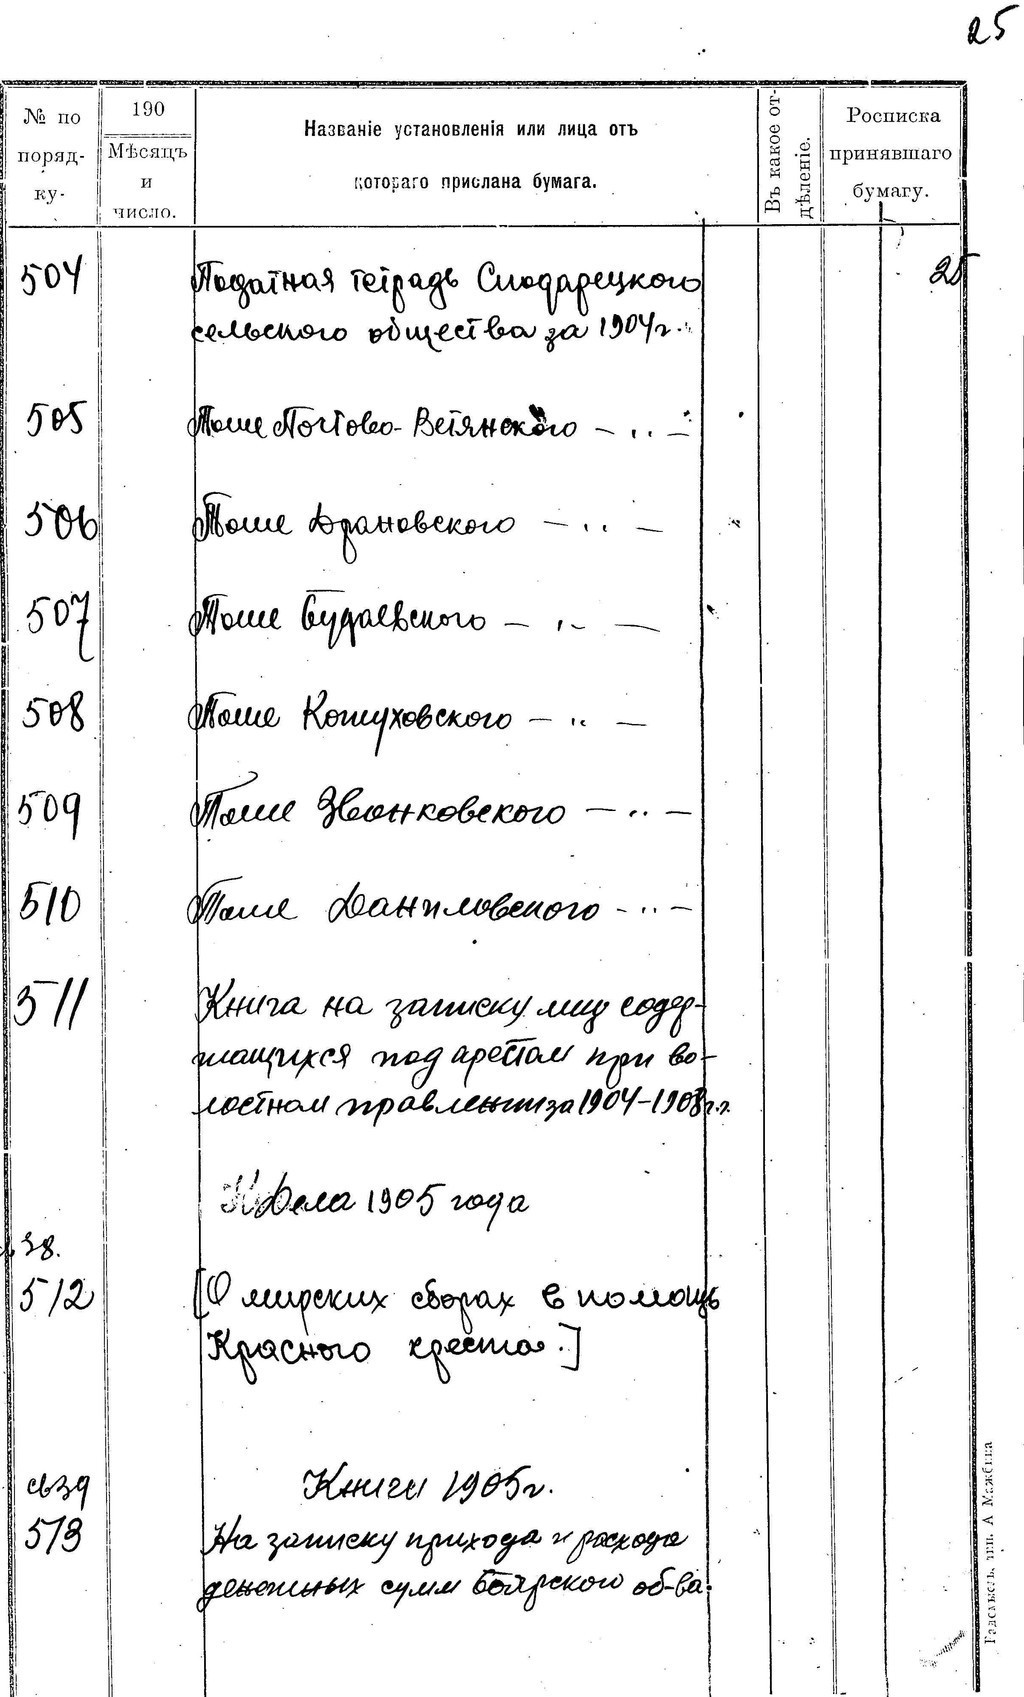 25
№ по поряд- ку.
190
Мѣсяцъ и число.
Названіе установленія или лица отъ
котораго прислана бумага.
Въ какое от-
дѣленіе.
Росписка
принявшаго
бумагу.
504 Податная тетрадь Слодарецкого 25
сельского общества за 1904 г.
505 Тоже Почтово-Ветянского — „ —
506 Тоже Драновского — „ —
507 Тоже Будаевского — „ —
508 Тоже Кожуховского — „ —
509 Тоже Звонковского — „ —
510 Тоже Даниловского — „ —
511 Книга на записку лиц содер-
жащихся под арестом при во-
лостном правлении за 1904-1908 г.г.
Дела 1905 года
38.
512 [О мирских сборах в помощь
Красного креста.]
св39 Книги 1905 г.
513 На записку прихода и расхода
денежных сумм Боярского об-ва.
тип. А